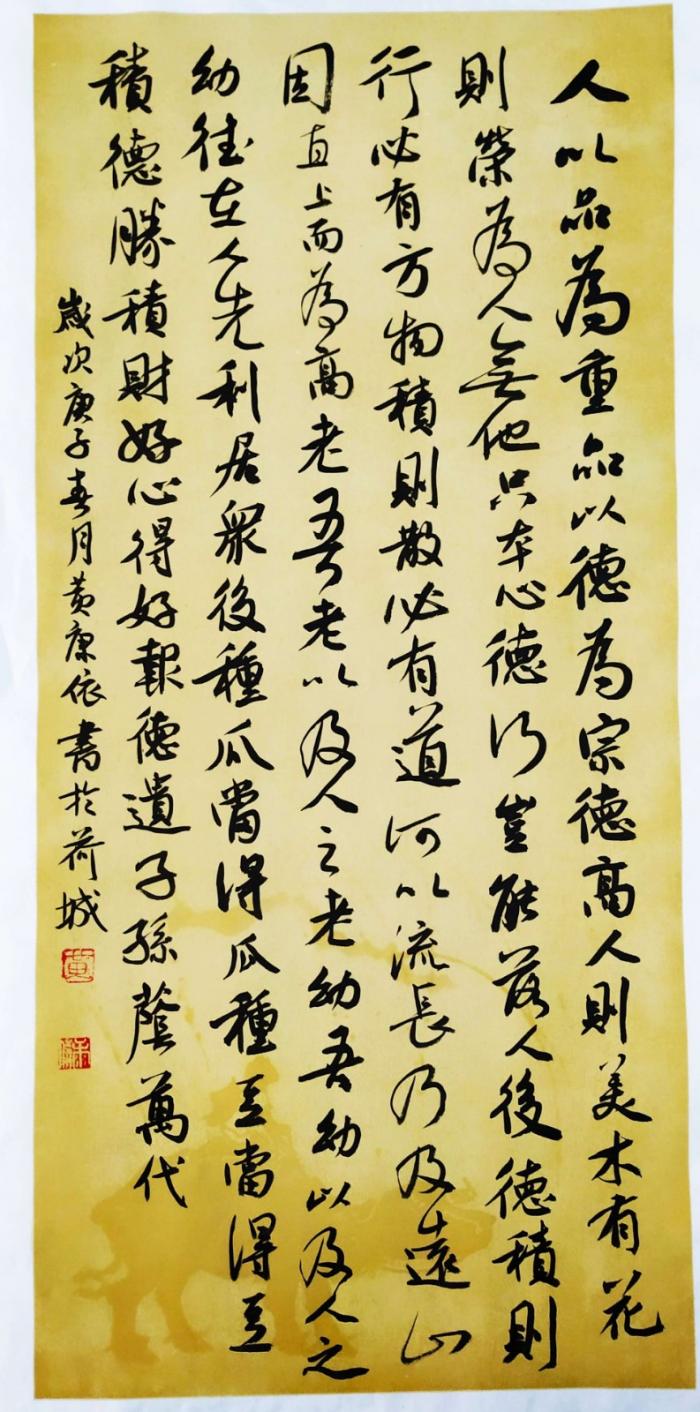 人以品為重品以德為宗德高人則美木有花
則榮為人無他只本心德行豈能落人後德積則
行必有方物積則散必有道河以流長乃及遠山
因直上而為高老吾老以及人之老幼吾幼以及人之
幼德在人先利居眾後種瓜當得瓜種豆當得豆
積德勝積財好心得好報德遺子孫蔭萬代
歲次庚子春月黃康依書於荷城
黃